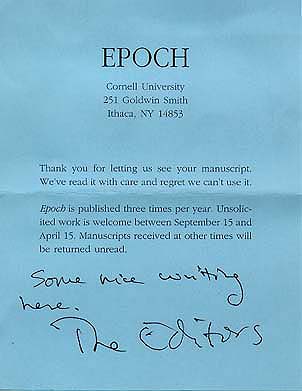 EPOCH
Cornell University
251 Goldwin Smith
Ithaca, NY 14853
Thank you for letting us see your manuscript.
We've read it with care and regret we can't use it.
Epoch is published three times per year. Unsolic-
ited work is welcome between September 15 and
April 15. Manuscripts received at other times will
be returned unread.
Some nice writing
here.
The Editors